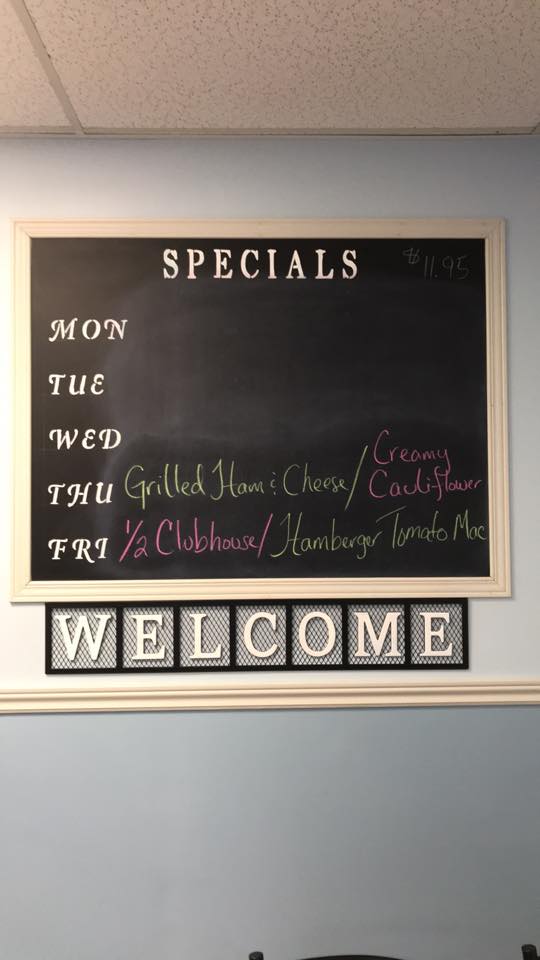 SPECIALS $11.95
MON
TUE
WED
THU Grilled Ham & Cheese/ Creamy Cauliflower
FRI 1/2 Clubhouse/ Hamberger Tomato Mac
WELCOME